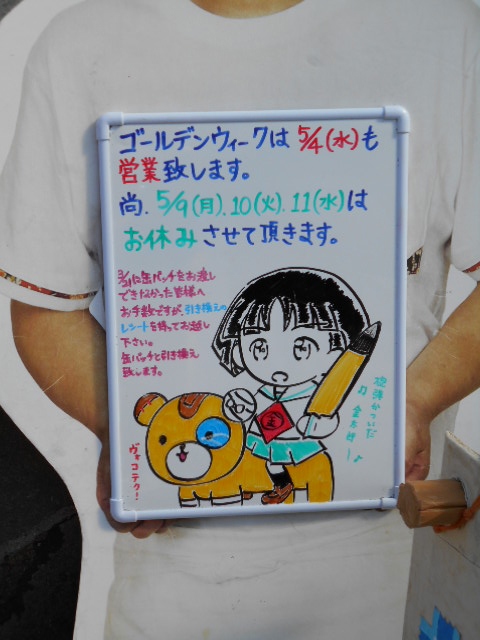 ゴールデンウィークは 5/4(水)も
営業致します。
尚、5/9(月)、10(火)、11(水)は
お休みさせて頂きます。
缶バッチをお渡し
できなかった皆様へ
お手数ですが、引き換えの
レシートを持ってお越し
下さい。
缶バッチと引き換え
致します。
砲弾かついだ
金太郎ー♪
金
ヴォコテク!